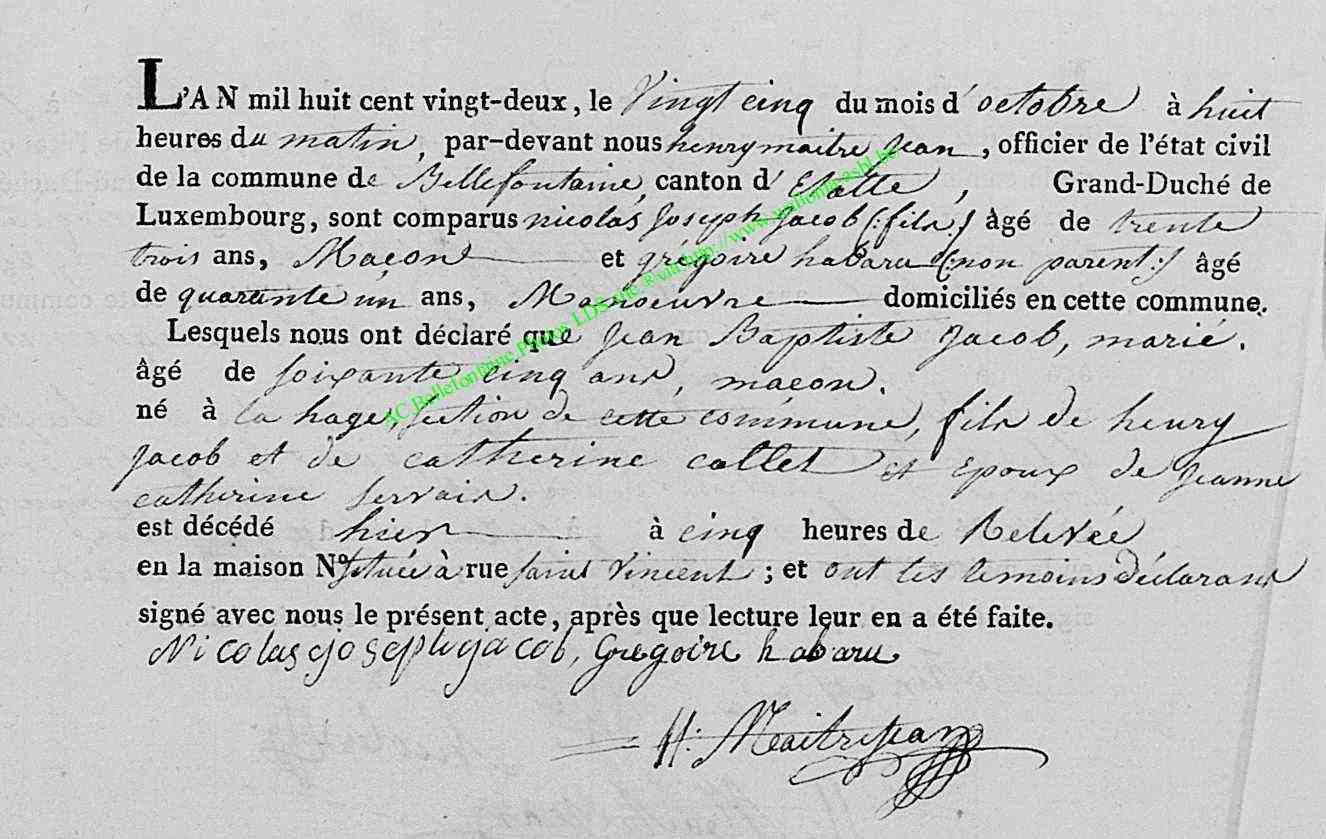 L'AN mil huit cent vingt-deux, le vingt cinq du mois d'octobre à huit
heures du matin, par-devant nous henry maitre Jean, officier de l'état civil
de la commune de Bellefontaine, canton d'Etalle, Grand-Duché de
Luxembourg, sont comparus nicolas Joseph Jacob (:fils:) âgé de trente
trois ans, Maçon et grégoire habaru (:non parent:) âgé
de quarante un ans, Manoeuvre domiciliés en cette commune.
Lesquels nous ont déclaré que Jean Baptiste Jacob, marié.
âgé de soixante cinq ans, macon.
né à la hage, section de cette commune, fils de henry
Jacob et de catherine collet et Epoux de Jeanne
catherine servais.
est décédé hier à cinq heures de Relevée
en la maison No située à rue saint Vincent ; et ont les temoins déclarans
signé avec nous le présent acte, après que lecture leur en a été faite.
Nicolas joseph jacob, Gregoire habaru
H: Maitrejean
AC Bellefontaine Photos LDS http://www.wallonia asbl.be